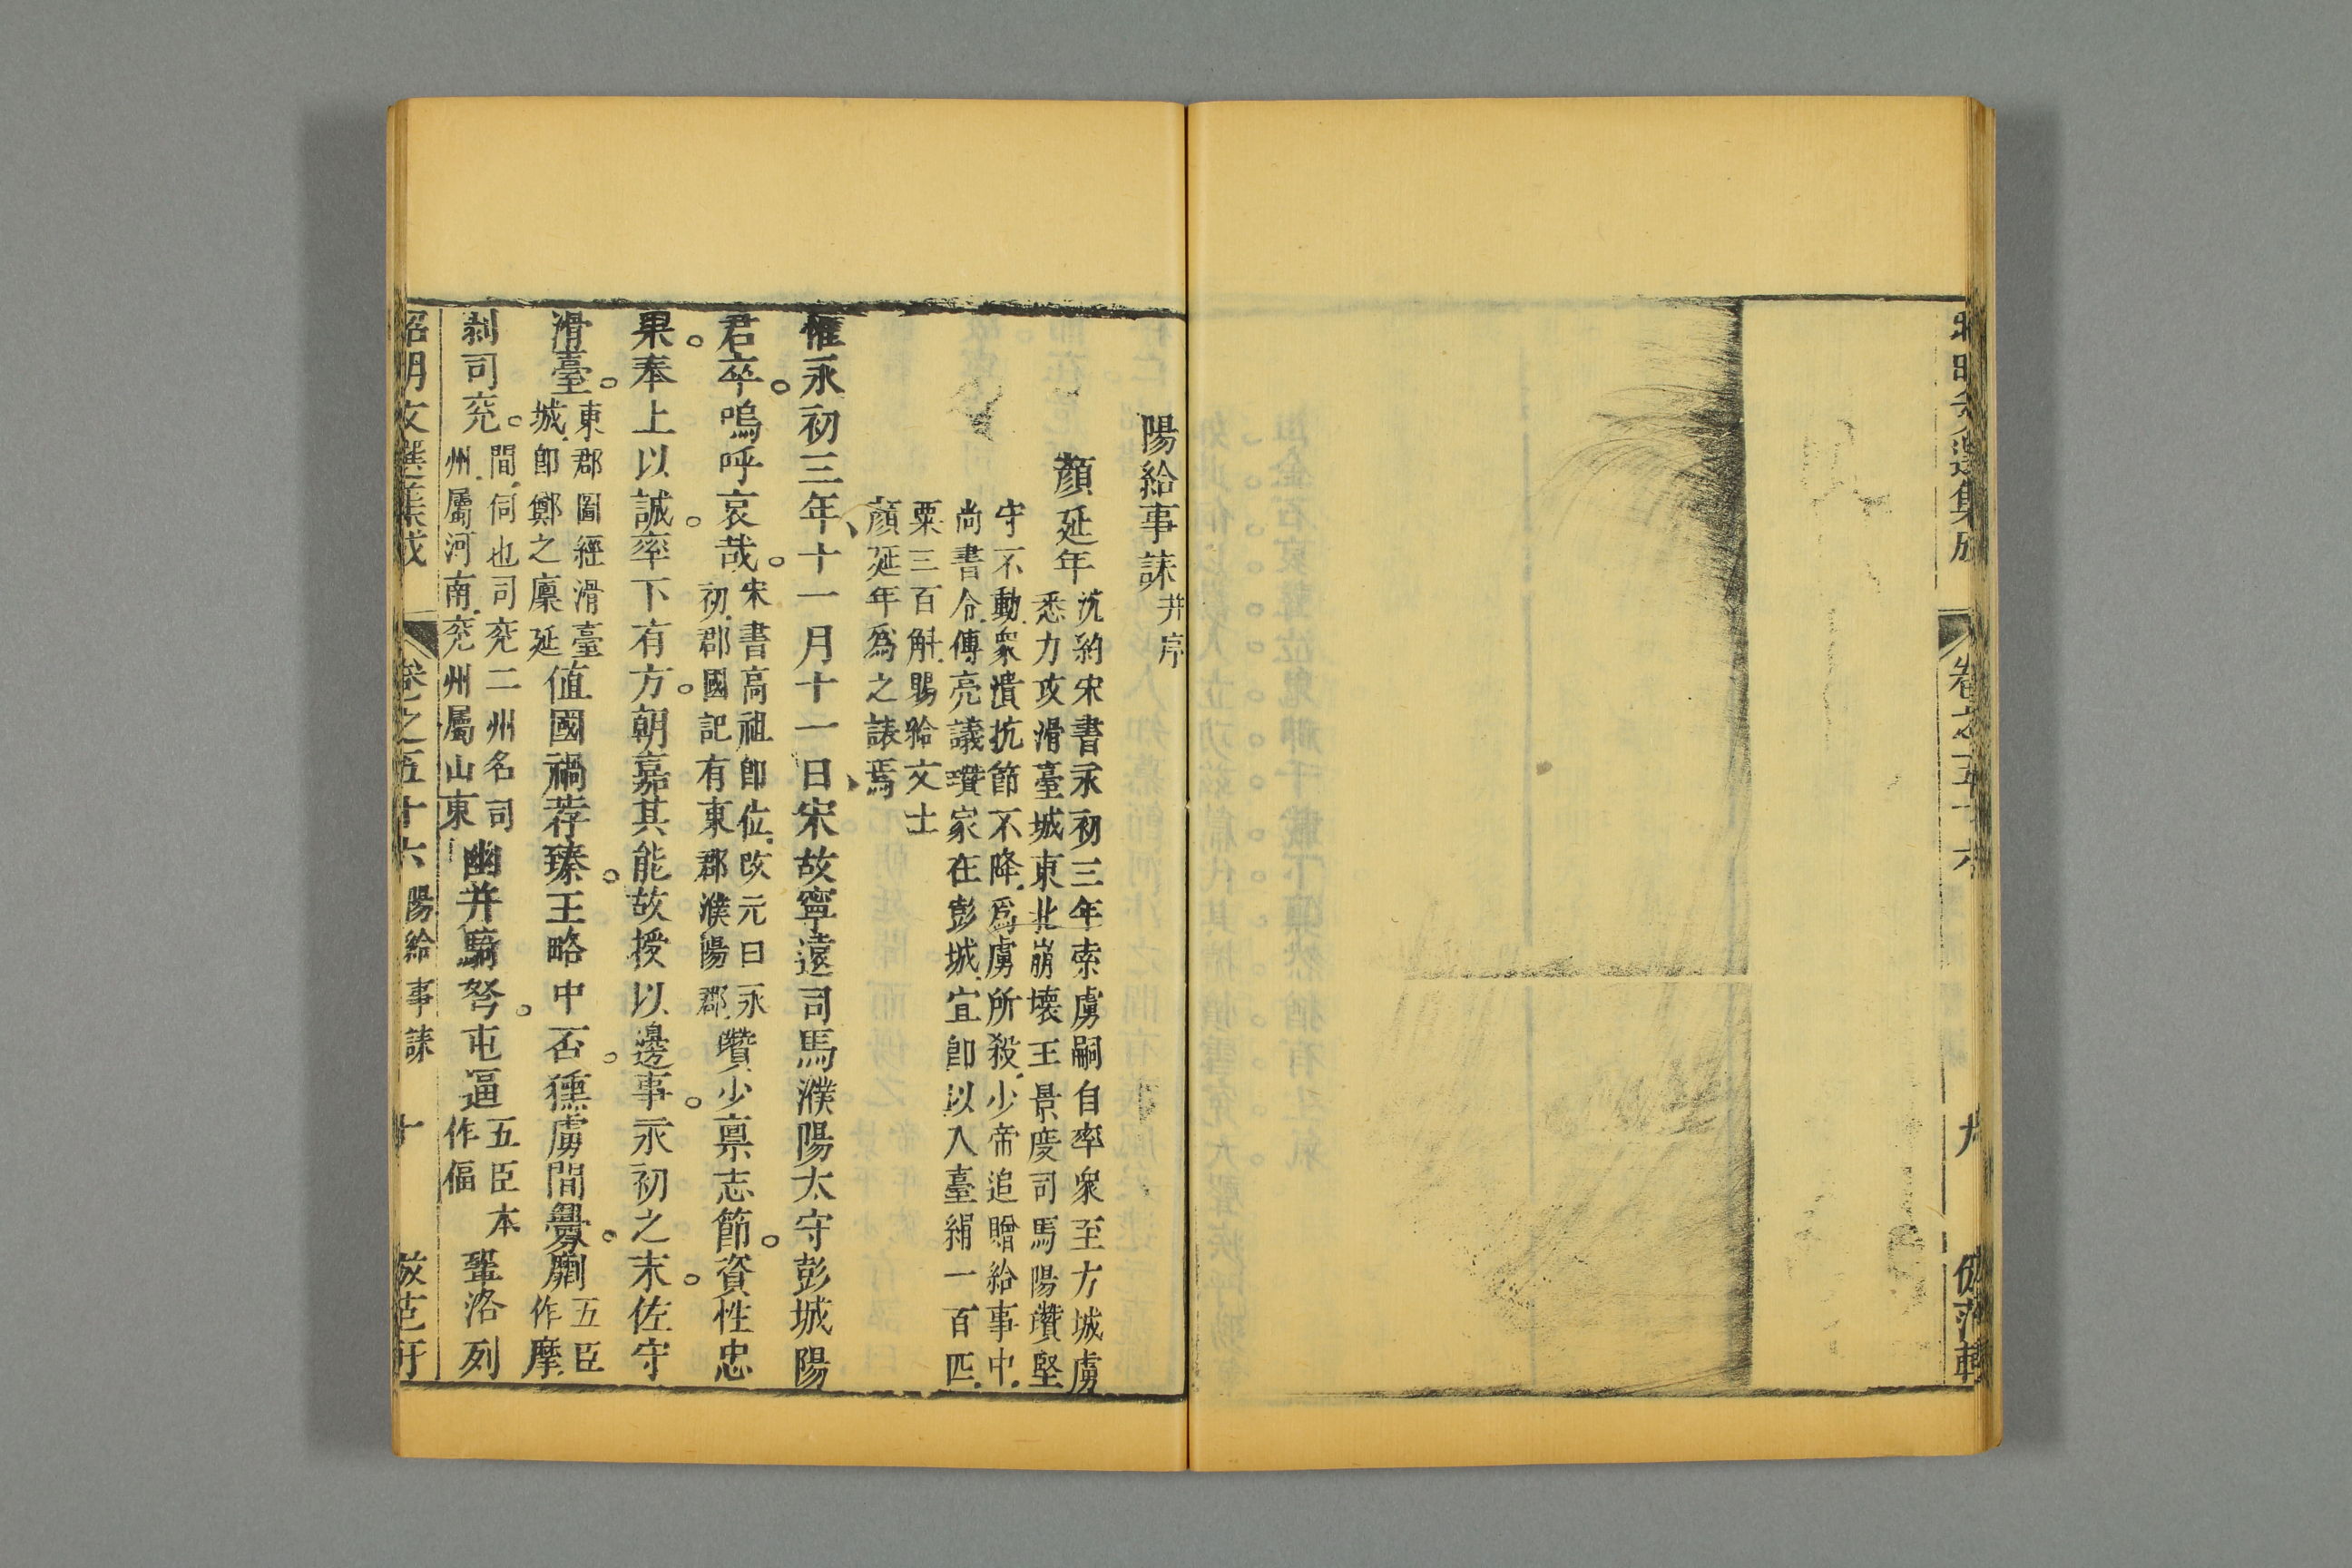 昭明文選集成
卷之五十六
九
倣范軒
陽給事誄并序
顏延年
沈約宋書永初三年索虜嗣自率衆至方城虜
悉力攻滑臺城東北崩壞王景度司馬陽瓚堅
守不動衆潰抗節不降爲虜所殺少帝追贈給事中
尚書令傳亮議瓚家在彭城宜卽以入臺絹一百匹
粟三百斛賜給文士
顏延年爲之誄焉
惟永初三年十一月十一日宋故寧遠司馬濮陽太守彭城陽
君卒嗚呼哀哉
宋書高祖卽位改元曰永
初郡國記有東郡濮陽郡
瓚少禀志節資性忠
果奉上以誠率下有方朝嘉其能故授以邊事永初之末佐守
滑臺
東郡圖經滑臺
城卽鄭之廩延
值國禍荐臻王略中否獯虜間釁劘
五臣
作摩
剥司兖
間伺也司兖二州名司
州屬河南兖州屬山東
幽并騎弩屯逼
五臣本
作偪
鞏洛列
昭明文選集成
卷之五十六
陽給事誄
十
倣范軒